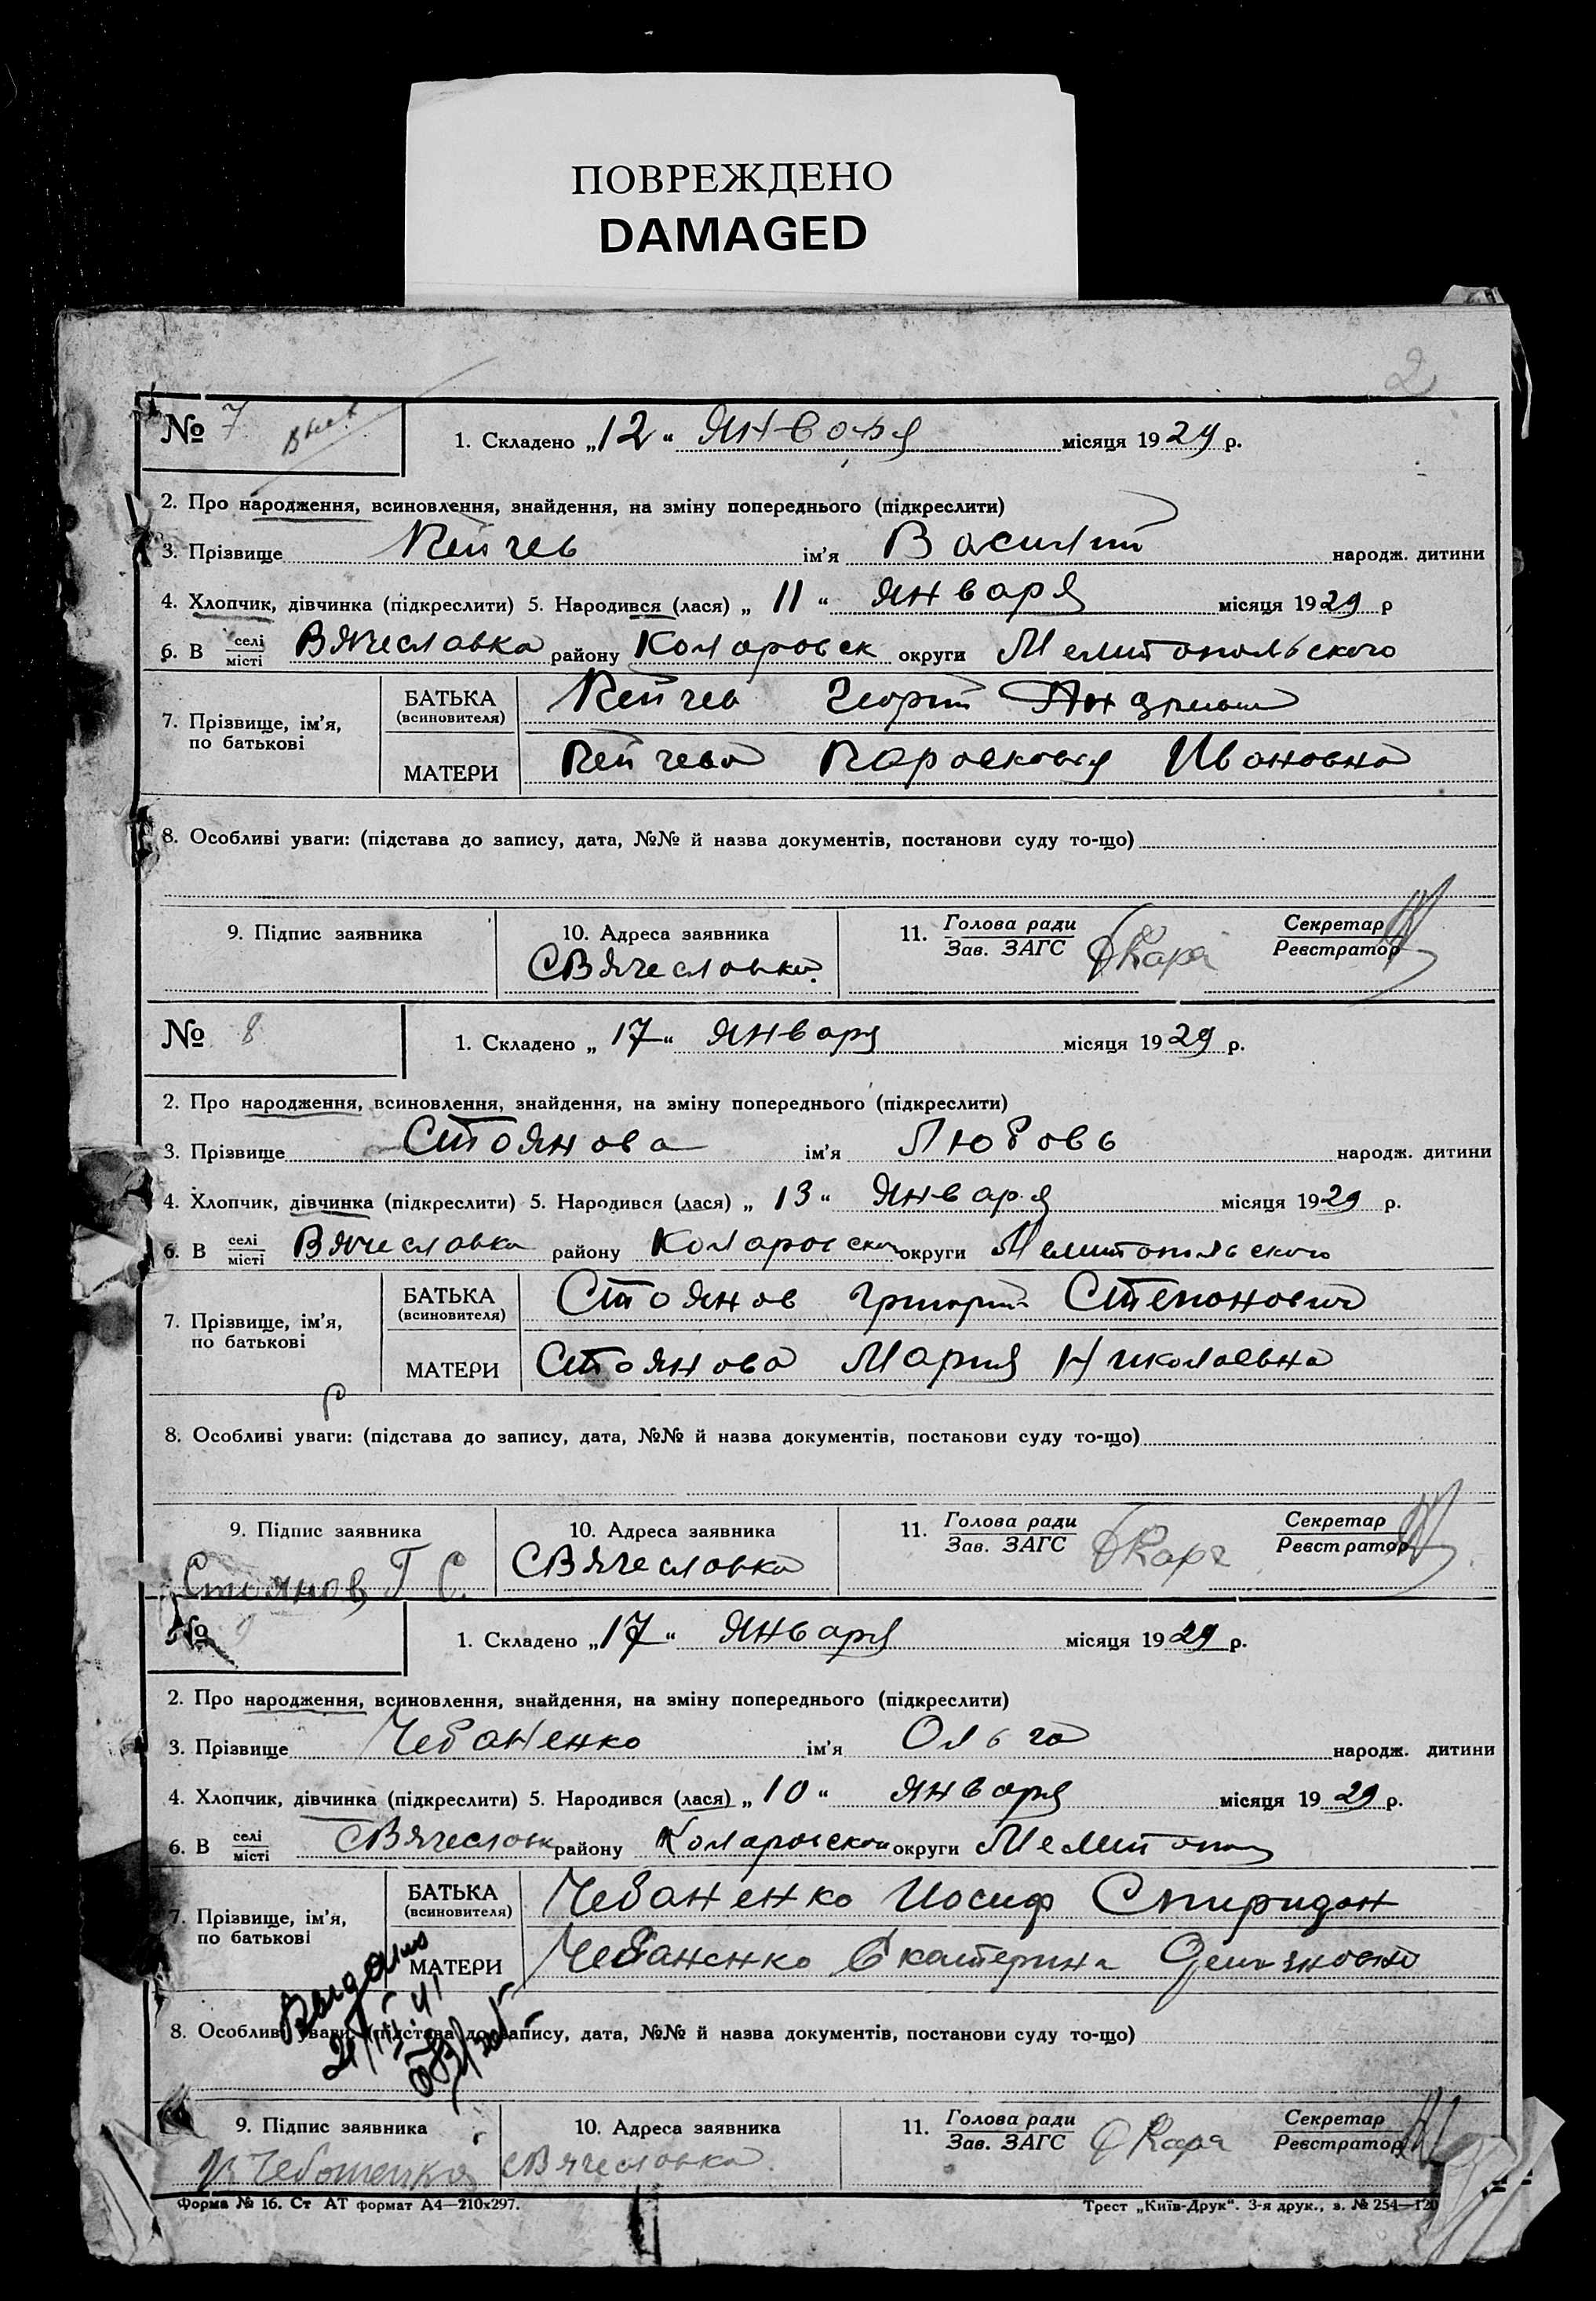 ПОВРЕЖДЕНО
DAMAGED
2
№ 7
1. Складено „12“ Января місяця 1929 р.
2. Про народження, всиновлення, знайдення, на зміну попереднього (підкреслити)
3. Прізвище Кейчев ім’я Василий народж. дитини
4. Хлопчик, дівчинка (підкреслити) 5. Народився (лася) „ 11 “ января місяця 1929 р
6. В селі місті Вячеславка району Коларовск округи Мелитопольского
7. Прізвище, ім’я, по батькові
БАТЬКА (всиновителя) Кейчев Георгий
МАТЕРИ Кейчева Парасковья Ивановна
8. Особливі уваги: (підстава до запису, дата, №№ й назва документів, постанови суду то-що)
9. Підпис заявника 10. Адреса заявника 11. Голова ради Зав. ЗАГС Секретар Реєстратор
СВячеславка
№ 8
1. Складено „ 17 “ января місяця 1929 р.
2. Про народження, всиновлення, знайдення, на зміну попереднього (підкреслити)
3. Прізвище Стоянова ім’я Любовь народж. дитини
4. Хлопчик, дівчинка (підкреслити) 5. Народився (лася) „ 13 “ Января місяця 1929 р.
6. В селі місті Вячеславка району Коларовском округи Мелитопольского
7. Прізвище, ім’я, по батькові
БАТЬКА (всиновителя) Стоянов Григорий Степанович
МАТЕРИ Стоянова Мария Николаевна
8. Особливі уваги: (підстава до запису, дата, №№ й назва документів, постанови суду то-що)
9. Підпис заявника 10. Адреса заявника 11. Голова ради Зав. ЗАГС Секретар Реєстратор
Стоянов Г С. СВячеславка
№ 9
1. Складено „17“ Января місяця 1929 р.
2. Про народження, всиновлення, знайдення, на зміну попереднього (підкреслити)
3. Прізвище Чебаненко ім’я Ольга народж. дитини
4. Хлопчик, дівчинка (підкреслити) 5. Народився (лася) „ 10 “ января місяця 1929 р.
6. В селі місті СВячеславк району Коларовском округи Мелитопол
7. Прізвище, ім’я, по батькові
БАТЬКА (всиновителя) Чебаненко Иосиф Спиридон
МАТЕРИ Чебаненко Екатерина Демьяновна
Выдано
8. Особливі уваги: (підстава до запису, дата, №№ й назва документів, постанови суду то-що)
9. Підпис заявника 10. Адреса заявника 11. Голова ради Зав. ЗАГС Секретар Реєстратор
СВячеславка
Форма № 16. Ст АТ формат А4—210х297. Трест „Київ-Друк“. 3-я друк., з. № 254—120